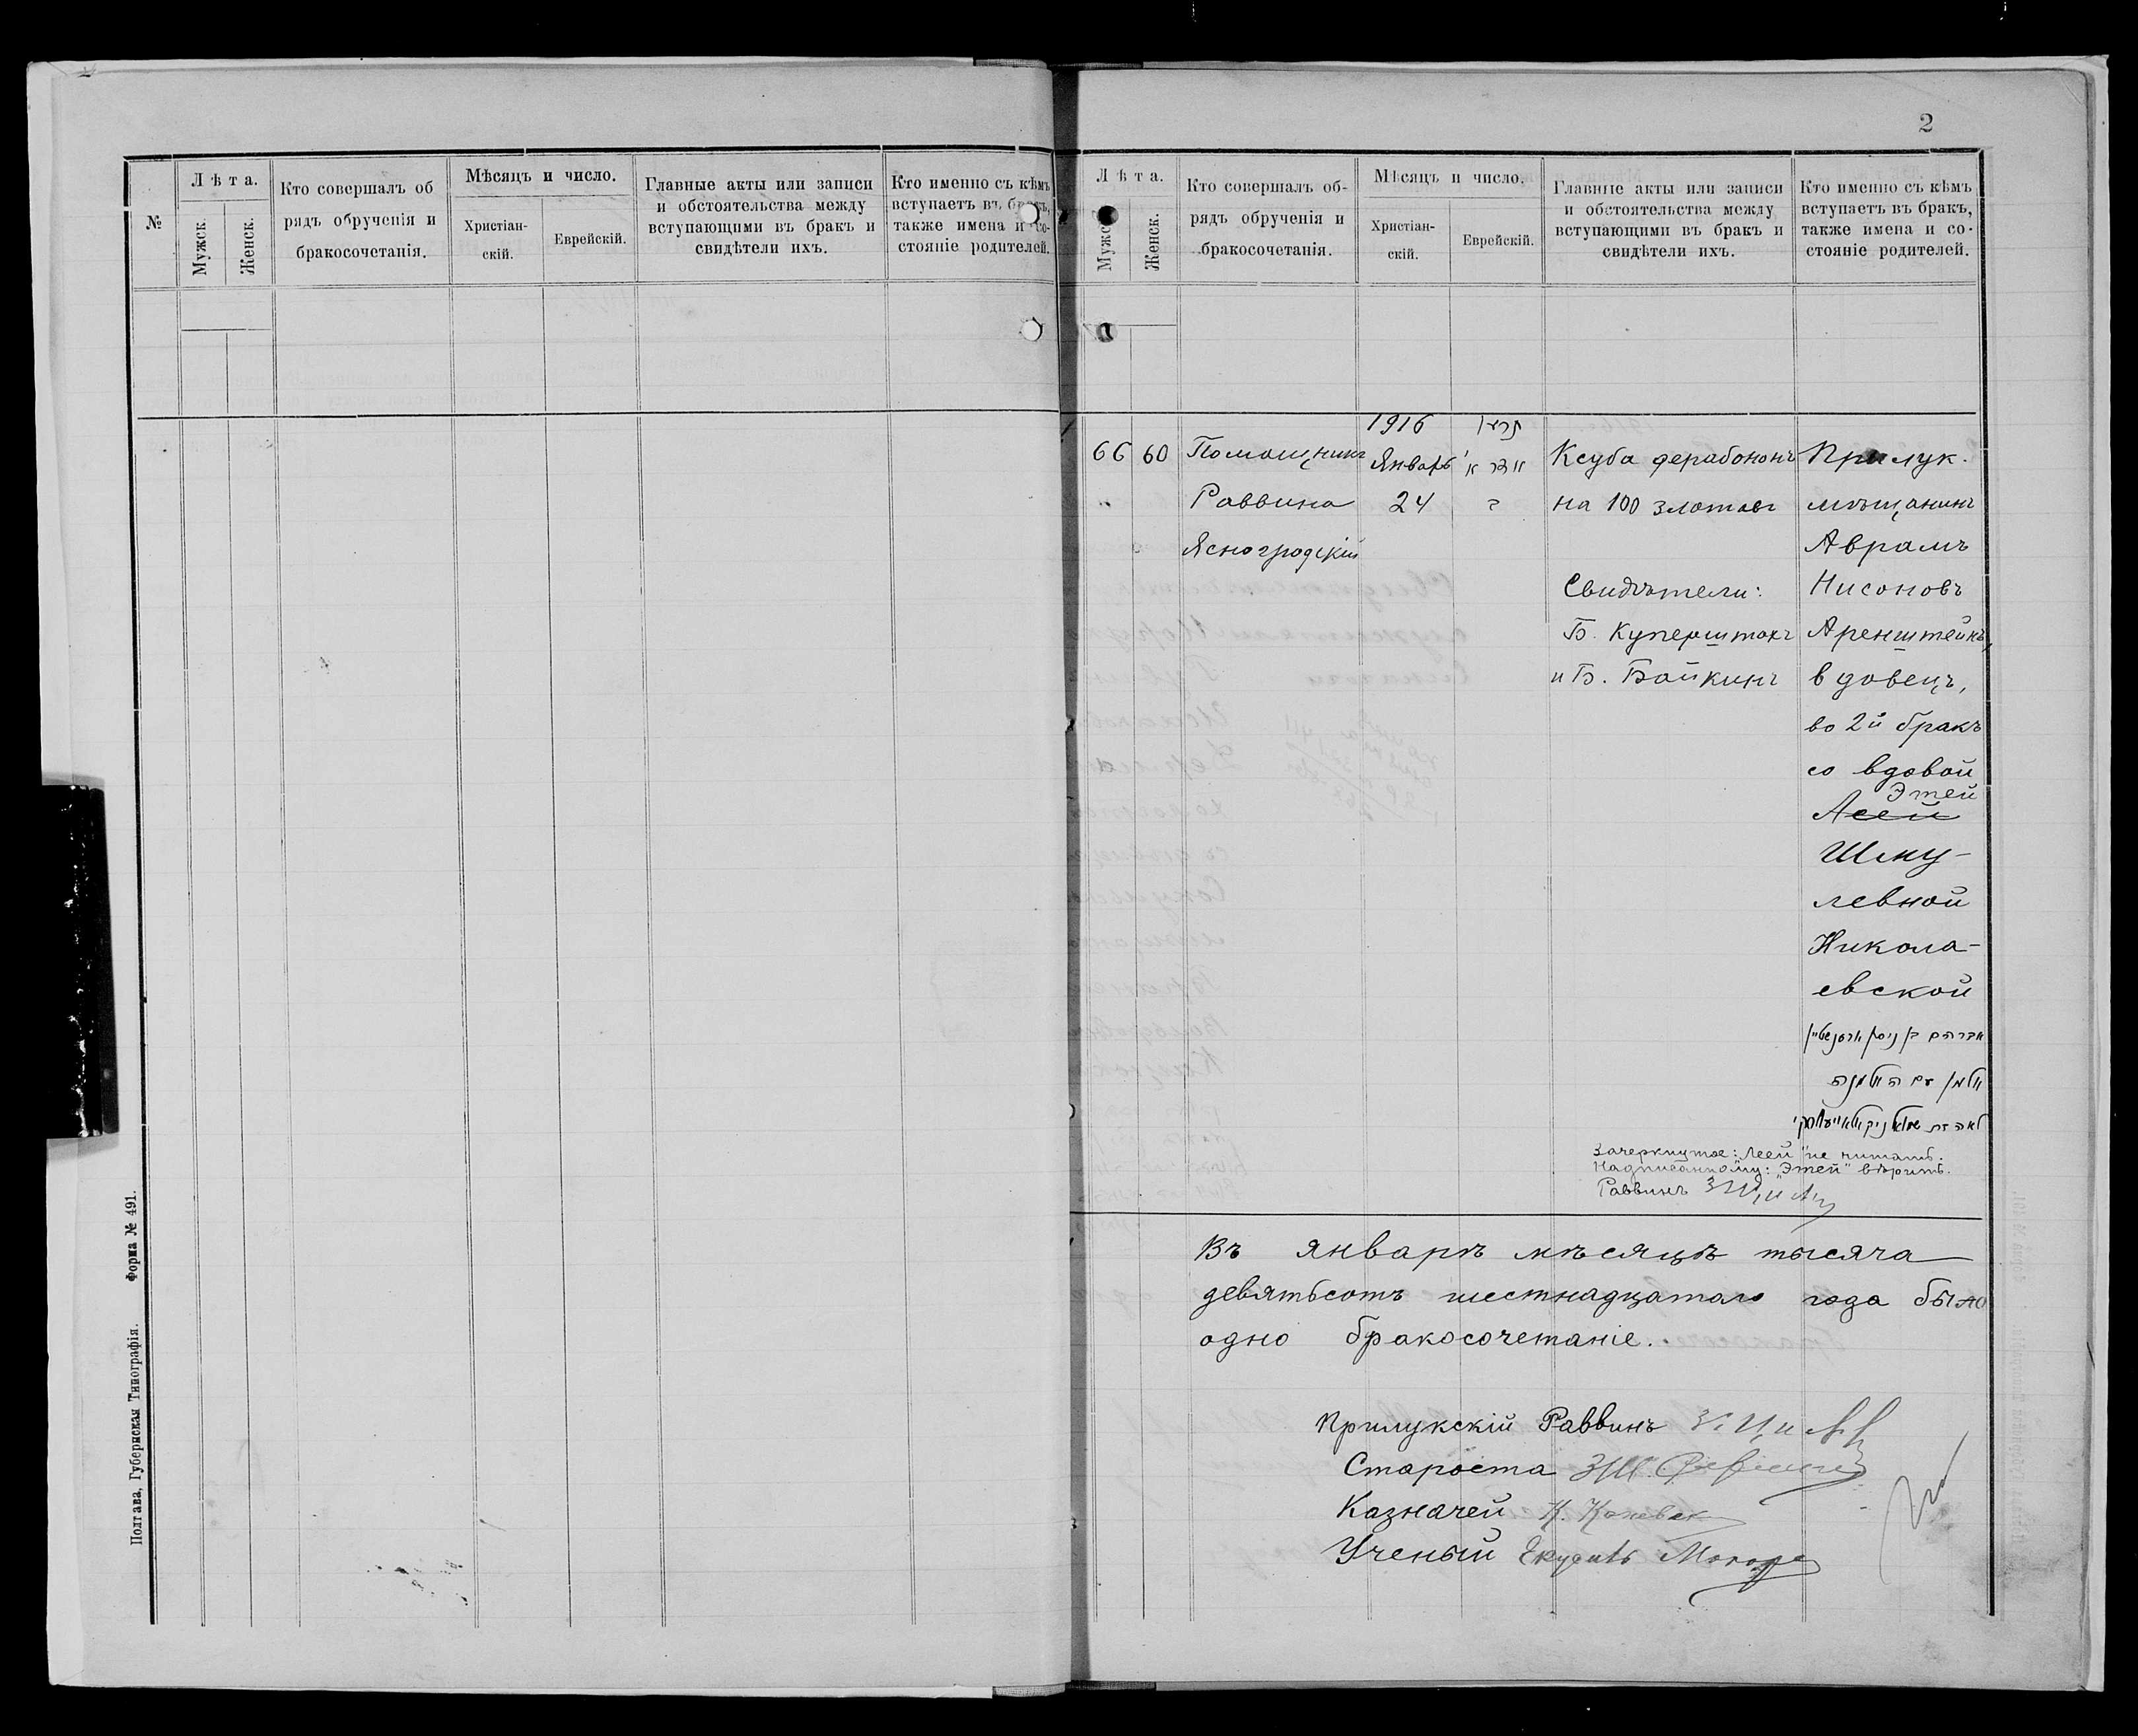 2
№
Лѣта.
Мужск.
Женск.
Кто совершалъ об
рядъ обрученія и
бракосочетанія.
Мѣсяцъ и число.
Христіан-
скій.
Еврейскій.
Главные акты или записи
и обстоятельства между
вступающими въ бракъ и
свидѣтели ихъ.
Кто именно съ кѣмъ
вступаетъ въ бракъ,
также имена и со-
стояніе родителей.
Полтава, Губернская Типографія. Форма № 491.
Лѣта.
Мужск
Женск.
Кто совершалъ об-
рядъ обрученія и
бракосочетанія.
Мѣсяцъ и число.
Христіан-
скій.
Еврейскій.
Главные акты или записи
и обстоятельства между
вступающими въ бракъ и
свидѣтели ихъ.
Кто именно съ кѣмъ
вступаетъ въ бракъ,
также имена и со-
стояніе родителей.
66
60
Помощникъ
Раввина
Ясногродскій
1916
Январь
24
Ксуба дерабононъ
на 100 злотовъ
Свидѣтели:
Б. Куперштохъ
и Б. Байкинъ
Прилук.
мѣщанинъ
Аврамъ
Нисоновъ
Аренштейнъ,
вдовецъ,
во 2й бракъ
со вдовой
Этей
Леей
Шму-
левной
Никола-
евской
אברהם בן ניסן ארענשטיין
אלמן עם האלמנה
Зачеркнутое: „Леей" не читать.
Надписанному: „Этей" вѣрить.
Раввинъ
Въ январѣ мѣсяцѣ тысяча
девятьсотъ шестнадцатаго года было
одно бракосочетаніе.
Прилукскій Раввинъ
Староста
Казначей К.
Ученый